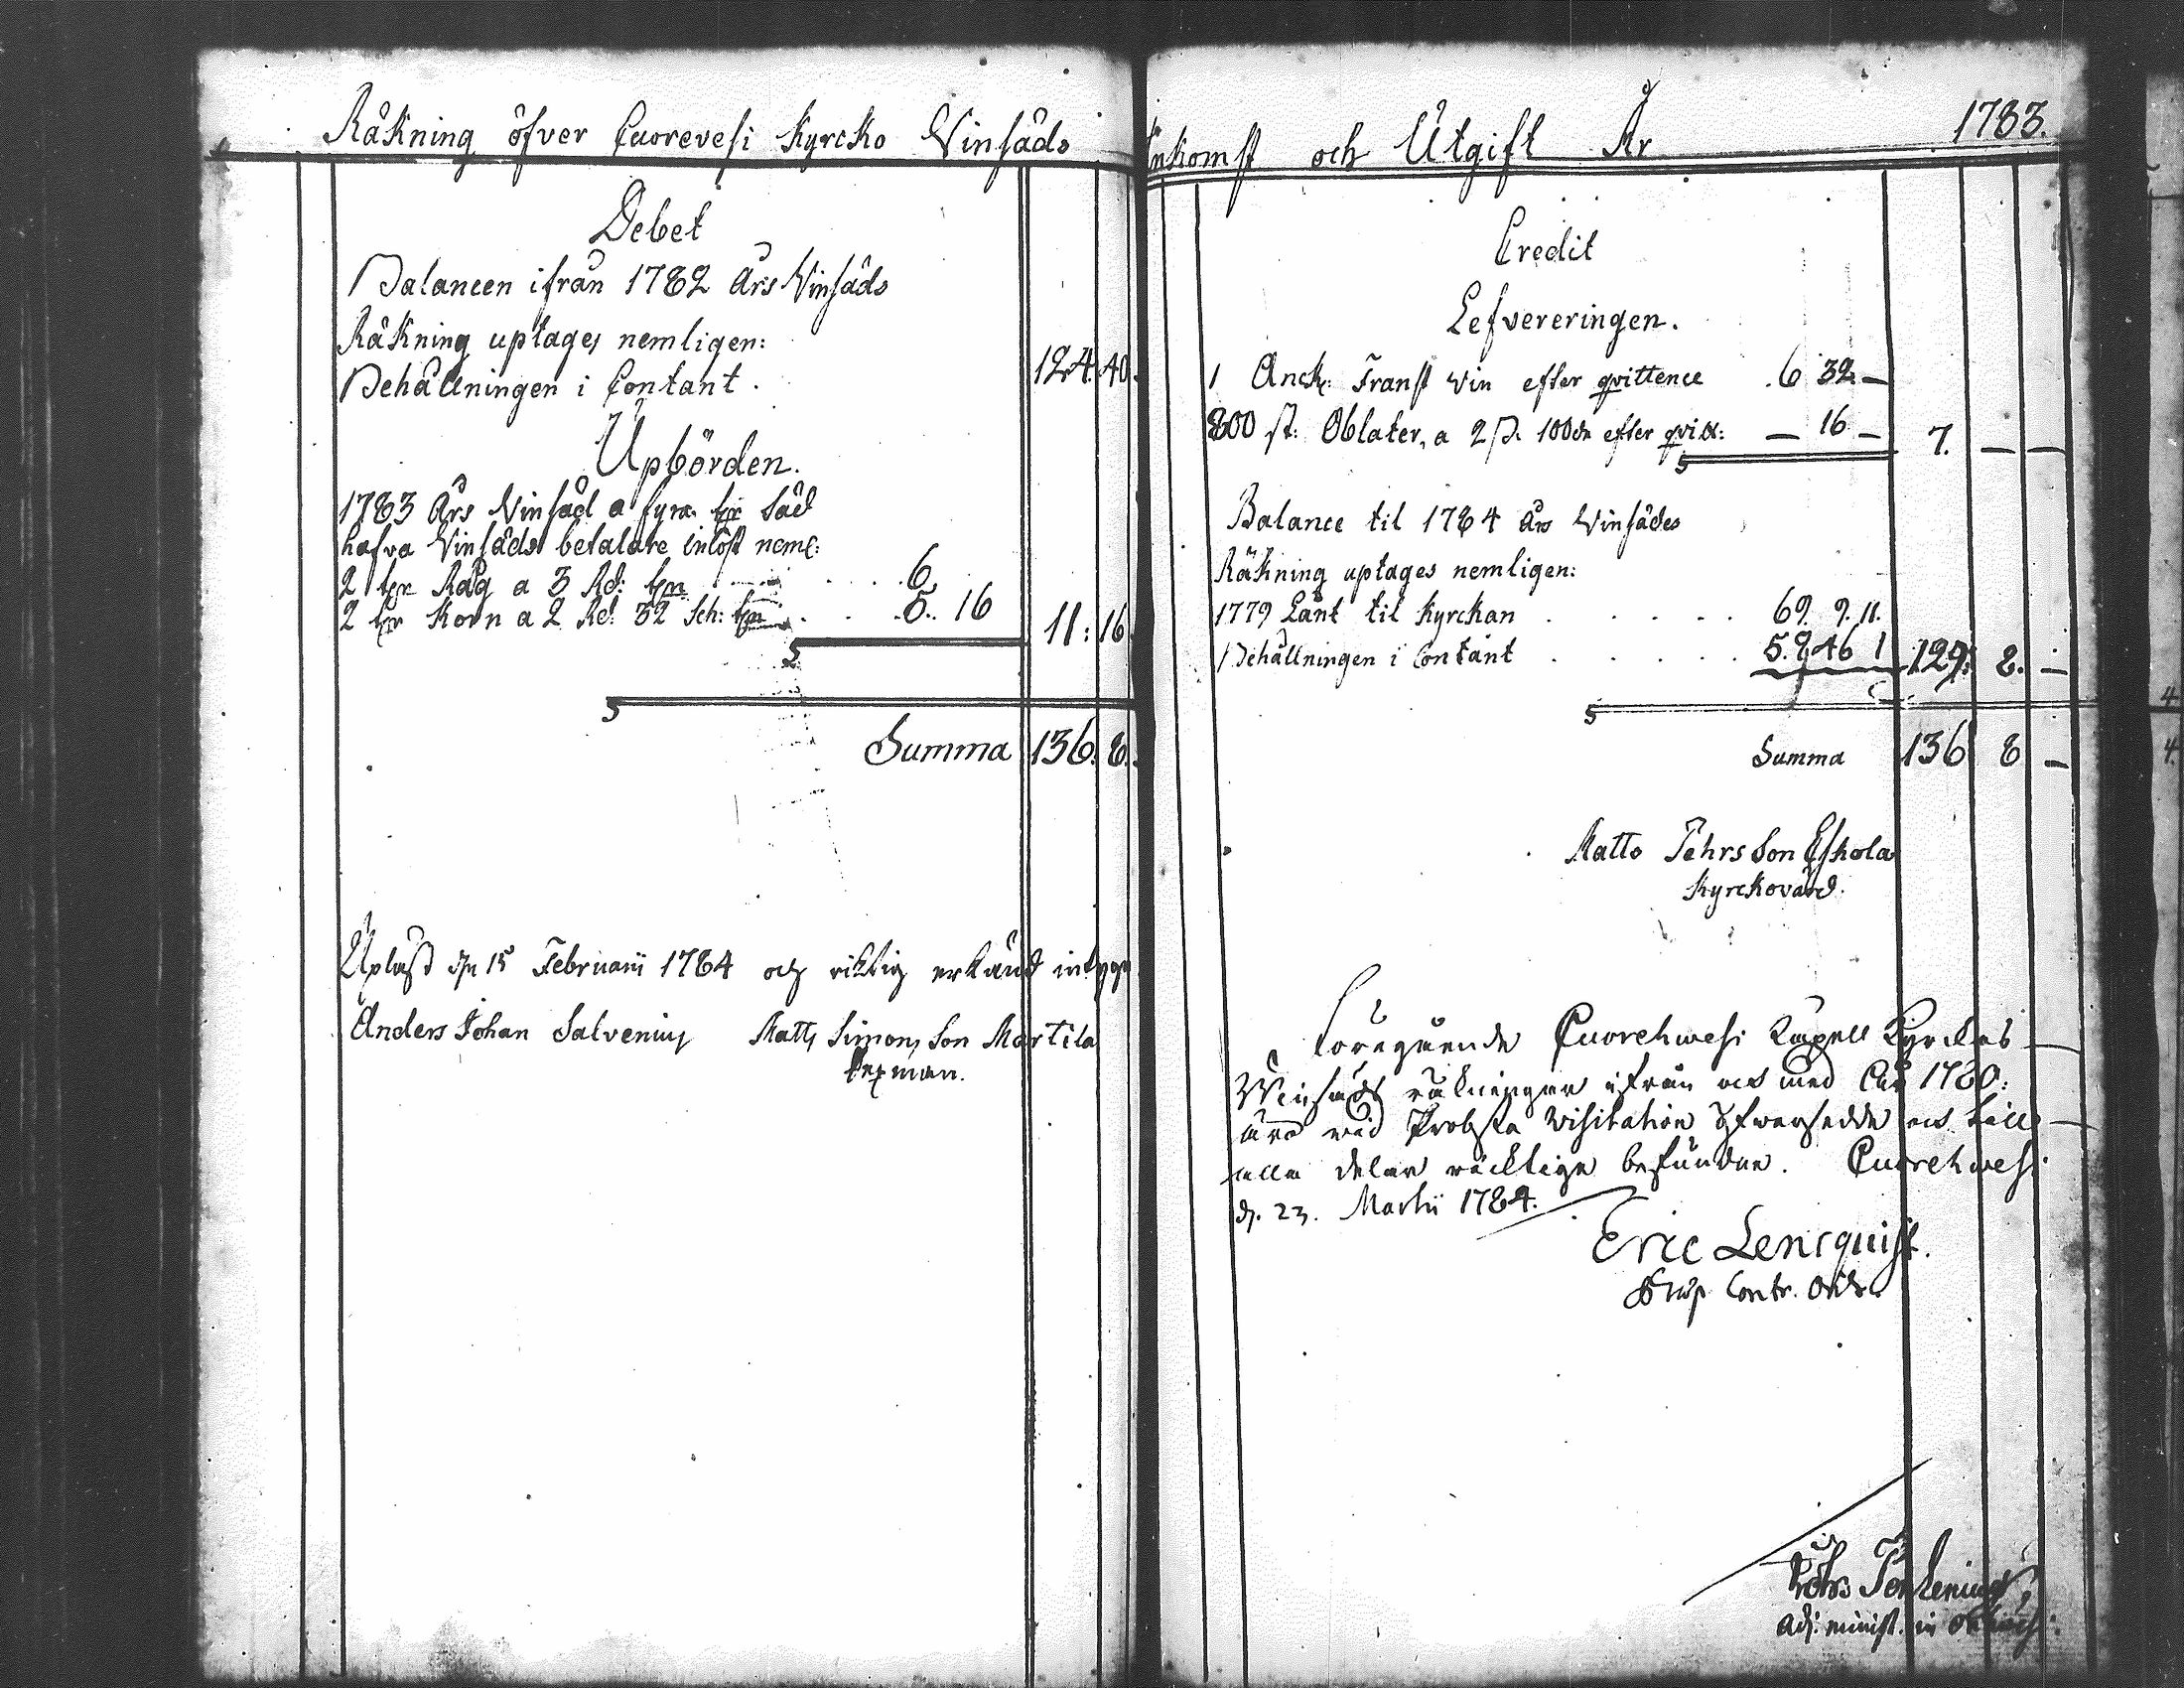 Räkning öfver Cuorevesi Kyrcko Vinsäds
Debet
Balancen ifrån 1782 Års Vinsäds
Räkning uptages nemligen:
Behållningen i Contant . 124. 40.
Upbörden.
1783 Års Vinsäd a fyra tnr Säd
hafva Vinsäds betalare inlöst neml:
2 tnr Råg a 3 Rd: tnn . . . 6.
2 tnr Korn a 2 Rd: 32 sch: tnn . . . 5. 16 11: 16
Summa 136. 8.
Upläst den 15 Februarii 1784 och riktig erkänd intyga
Anders Johan Salvenius Matts Simons Son Martila
sexman.
Inkomst och Utgift År 1783.
Credit
Lefvereringen.
1 Anck: Franst Vin efter qvittence . 6 32 —
800 st: Oblater, a 2 s. 100de efter qvitt: — 16 — 7. — —
Balance til 1784 års Vinsädes
Räkning uptages nemligen:
1779 Lånt til Kyrckan . . . . . 69. 9. 11.
Behållningen i Contant . . . . . 5.9 46 1 129. 8. —
Summa 136 8 —
Matts Pehrs Son Eskola
Kyrckovärd.
Föregående Cuorehwesi Capell Kyrckas
Winsäds räkningar ifrån och med År 1780:
äro wid Probsta Visitation öfwersedde och till
alla delar ricktige befundne. Cuorehwesi
d. 23. Martii 1784.
Eric Lencquist.
Contr.
Adj: minist. in